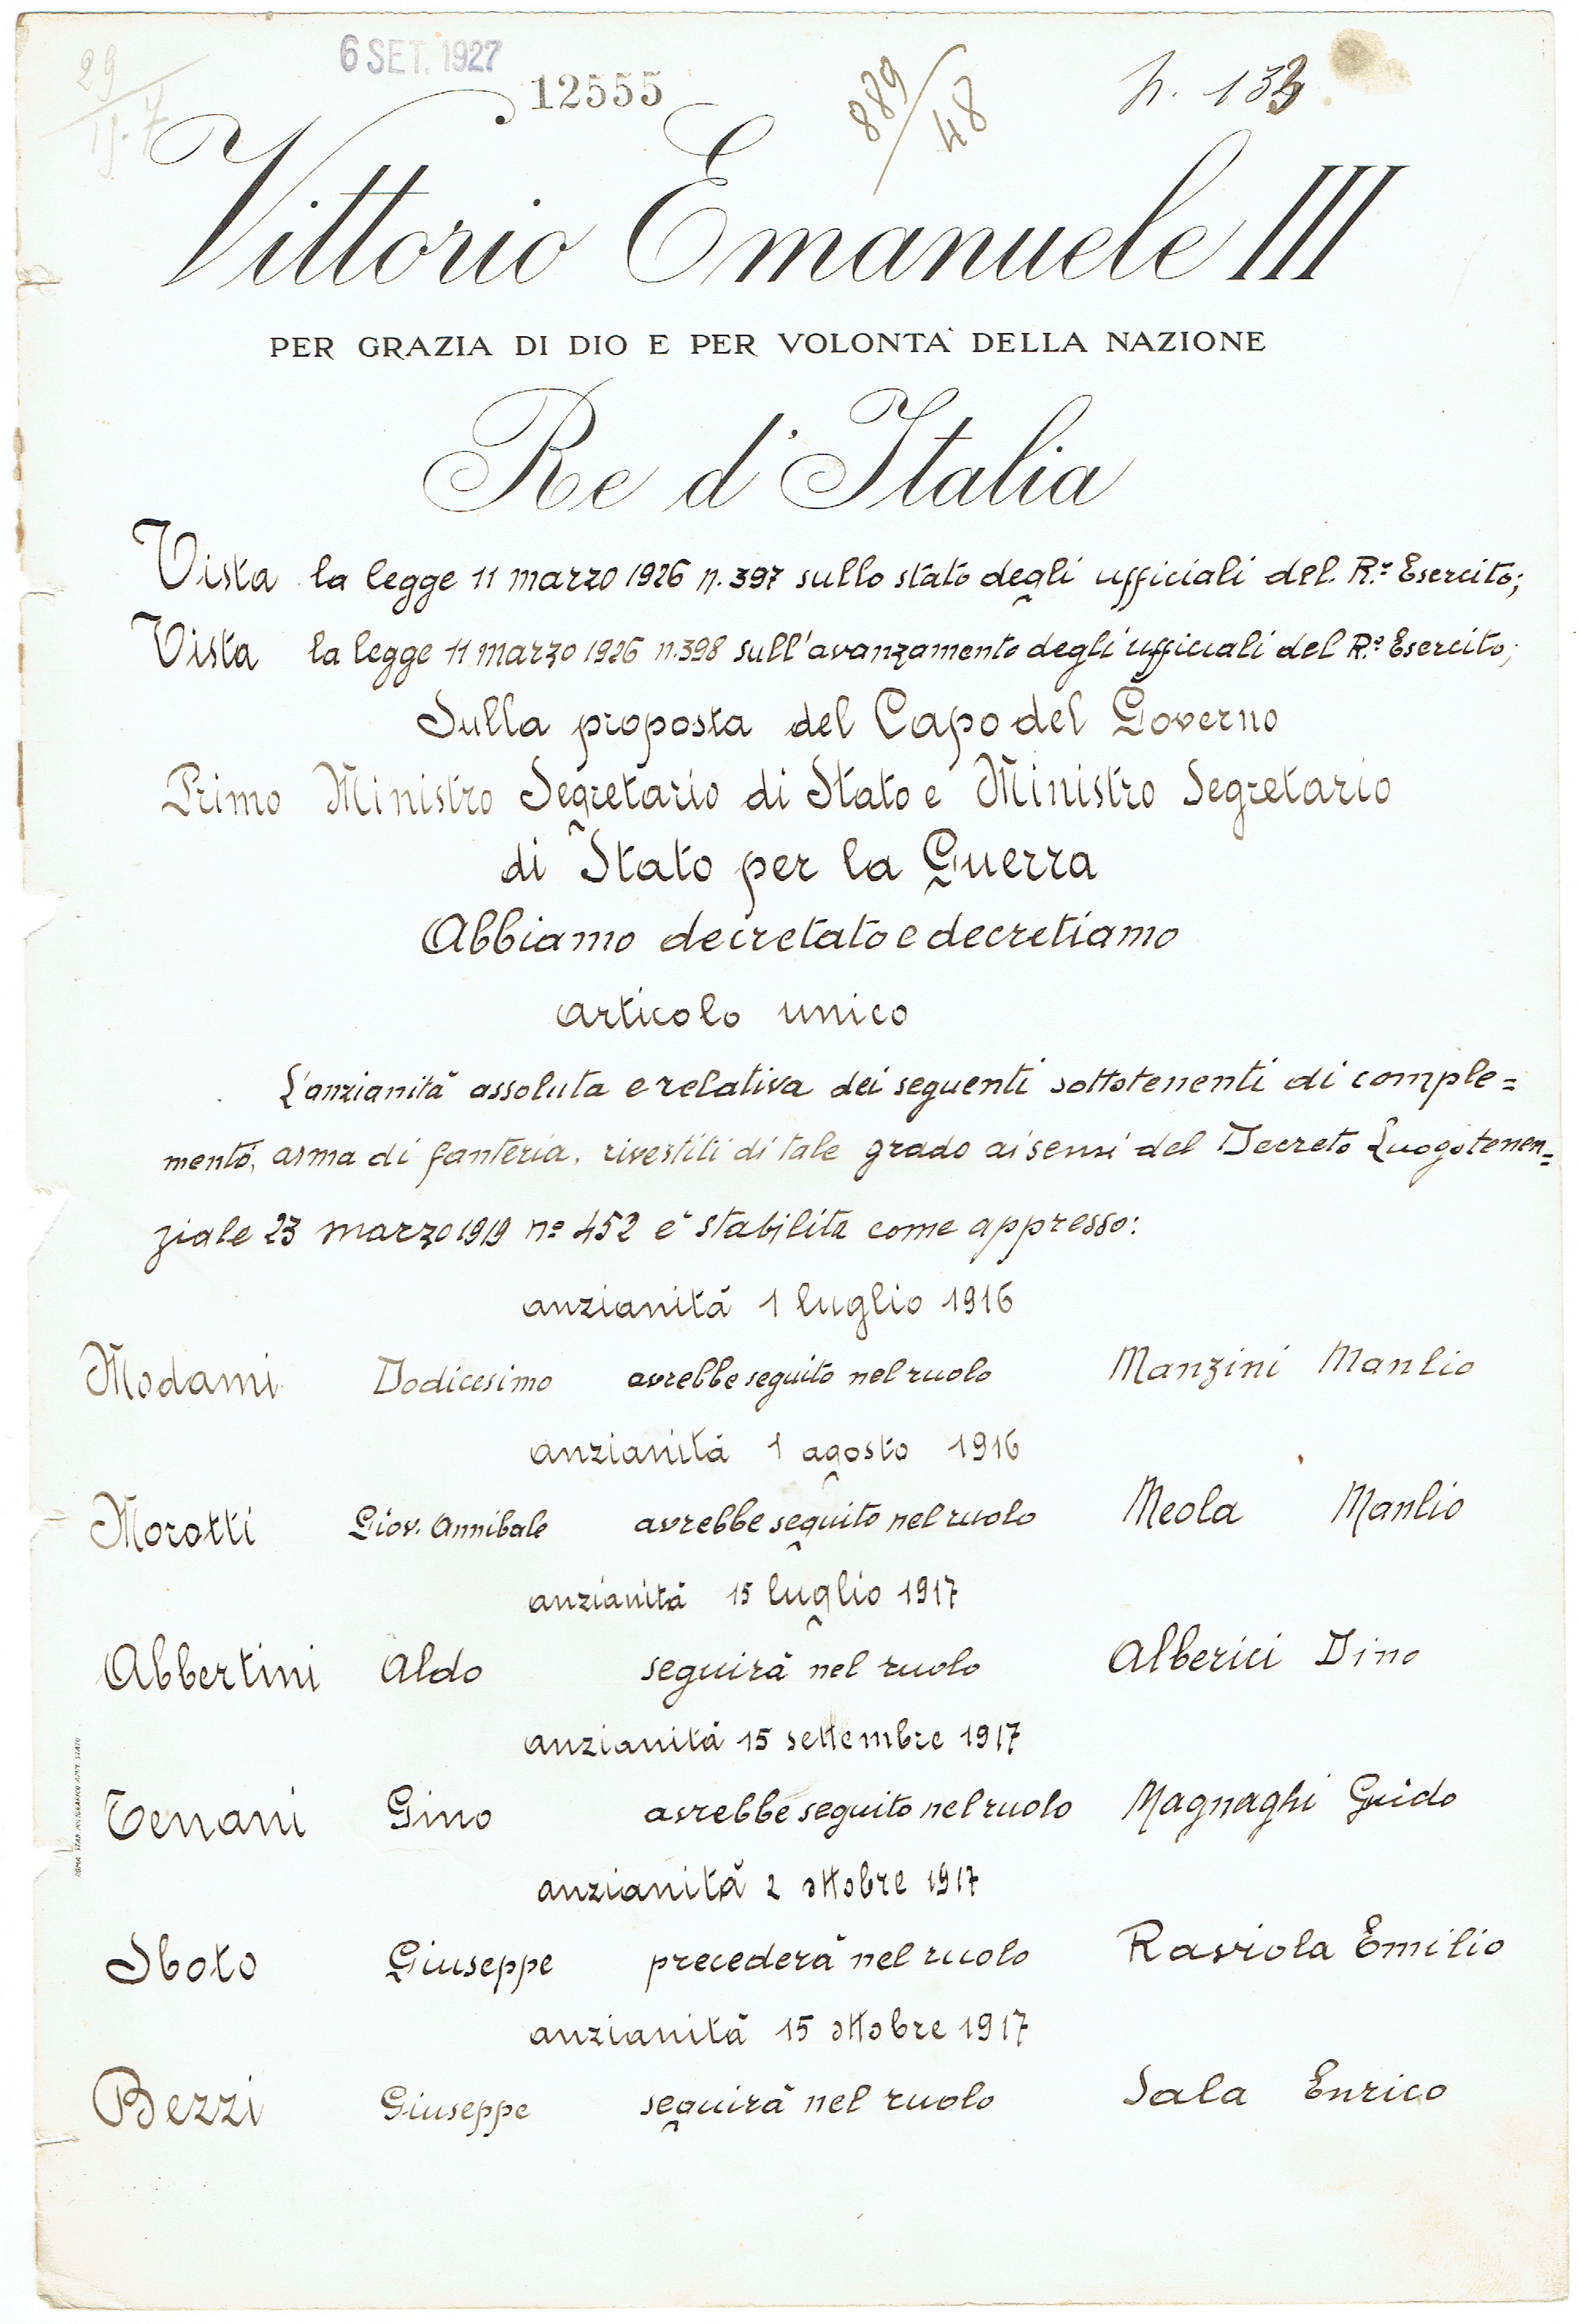 29/19.7
6 SET. 1927
12555
889/48
n. 133
Vittorio Emanuele III
PER GRAZIA DI DIO E PER VOLONTA` DELLA NAZIONE
Re d'Italia
Vista la legge 11 marzo 1926 n. 397 sullo stato degli ufficiali del R.º Esercito;
Vista la legge 11 marzo 1926 n. 398 sull'avanzamento degli ufficiali del R.º Esercito;
Sulla proposta del Capo del Governo
Primo Ministro Segretario di Stato e Ministro Segretario
di Stato per la Guerra
Abbiamo decretato e decretiamo
articolo unico
L'anzianità assoluta e relativa dei seguenti sottotenenti di comple=
mento, arma di fanteria, rivestiti di tale grado ai sensi del Decreto Luogotenen=
ziale 23 marzo 1919 nº 452 è stabilita come appresso:
anzianità 1 luglio 1916
Modami Dodicesimo avrebbe seguito nel ruolo Manzini Manlio
anzianità 1 agosto 1916
Morotti Giov. Annibale avrebbe seguito nel ruolo Meola Manlio
anzianità 15 luglio 1917
Abbertini Aldo seguirà nel ruolo Alberici Dino
anzianità 15 settembre 1917
Tenani Gino avrebbe seguito nel ruolo Magnaghi Guido
anzianità 2 ottobre 1917
Sboto Giuseppe precederà nel ruolo Raviola Emilio
anzianità 15 ottobre 1917
Bezzi Giuseppe seguirà nel ruolo Sala Enrico